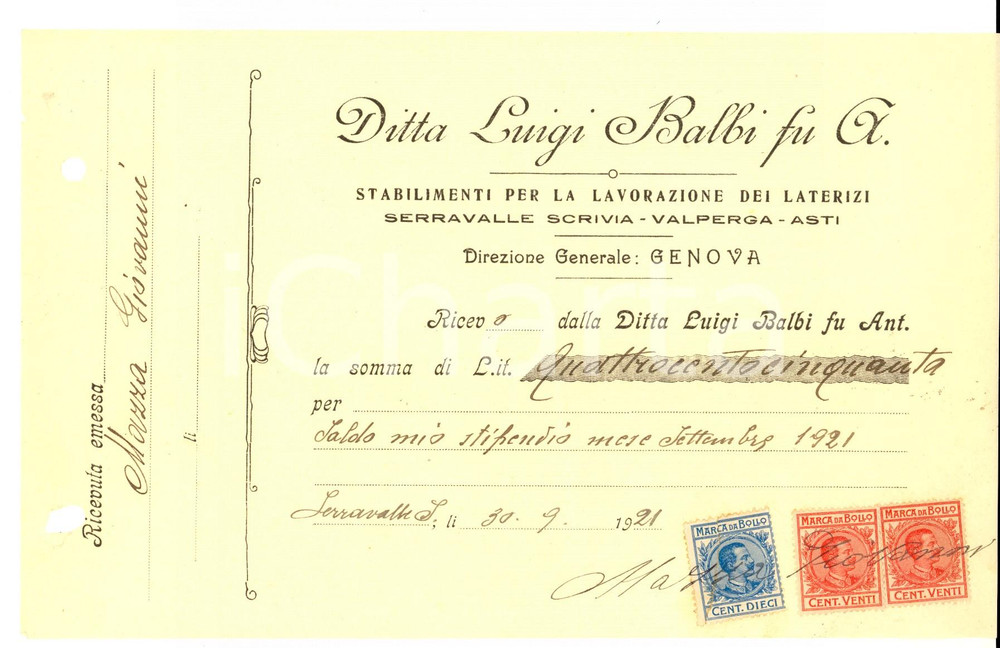 Ricevuta emessa
Mazza Giovanni
li
Ditta Luigi Balbi fu A.
STABILIMENTI PER LA LAVORAZIONE DEI LATERIZI
SERRAVALLE SCRIVIA - VALPERGA - ASTI
Direzione Generale: GENOVA
iCharta
Ricevo dalla Ditta Luigi Balbi fu Ant.
la somma di L.it. Quattrocentocinquanta
per
Saldo mio stipendio mese Settembre 1921
Serravalle S, li 30. 9. 1921
MARCA DA BOLLO MARCA DA BOLLO MARCA DA BOLLO
Mazza Giovanni
CENT. DIECI CENT. VENTI CENT. VENTI